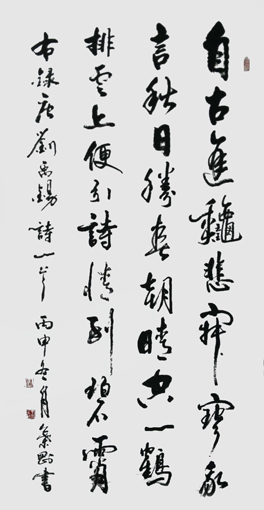 自古逢龝悲寂寥我
言秋日勝春朝晴空一鶴
排雲上便引詩情到碧霄
右錄唐劉禹錫詩一首 丙申冬月 書